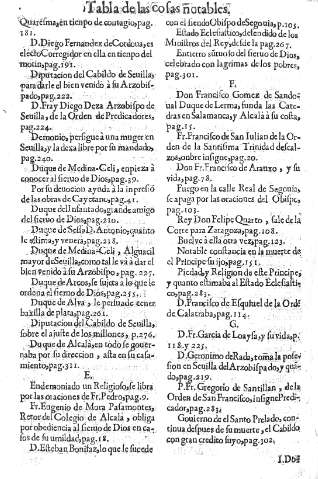 Tabla de las cosas notables.
Quaresma, en tiempo de contagio, pag.
181.
D. Diego Fernandez de Cordoua, es
electo Corregidor en ella en tiempo del
motin, pag. 191.
Diputacion del Cabildo de Seuilla,
para darle el bien venido à su Arzobis-
pado, pag. 222.
D. Fray Diego Deza Arzobispo de
Seuilla, de la Orden de Predicadores,
pag. 224.
Demonio, persigue à vna muger en
Seuilla, y la dexa libre por su mandado,
pag. 240.
Duque de Medina-Celi, empieza à
conocer al sieruo de Dios, pag. 39.
Por su deuocion ayuda à la impresiō
de las obras de Cayetano, pag. 41.
Duque del Infantado, grande amigo
del sieruo de Dios, pag. 210.
Duque de Sessa D. Antonio, quanto
le estima, y venera, pag. 218.
Duque de Medina-Celi, Alguacil
mayor de Seuilla, como tal le và à dar el
bien venido à su Arzobispo, pag. 227.
Duque de Arcos, se sujeta à lo que le
ordena el sieruo de Dios, pag. 255.
Duque de Alva, le persuade tener
baxilla de plata, pag. 261.
Diputacion del Cabildo de Seuilla,
sobre el ajuste de los millones, p. 276.
Duque de Alcalà, en todo se gouer-
naba por su direccion, asta en su casa-
miento, pag. 311.
E.
Endemoniado un Religioso, se libra
por las oraciones de Fr. Pedro, pag. 9.
Fr. Eugenio de Mora Pasamontes,
Retor del Colegio de Alcalà, obliga
por obediencia al sieruo de Dios en ca-
sos de su umildad, pag. 18.
D. Esteban Bonifaz, lo que le sucede
con el sieruo Obispo de Segouia, p. 105.
Estado Eclesiastico, defendido de los
Ministros del Rey, desde la pag. 267.
Entierro sumtuoso del sieruo de Dios,
celebrado con lagrimas de los pobres,
pag. 301.
F.
Don Francisco Gomez de Sando-
ual Duque de Lerma, funda las Cate-
dras en Salamanca, y Alcalà à su costa,
pag. 15.
Fr. Francisco de San Iulian de la Or-
den de la Santissima Trinidad descal-
zos, onbre insigne, pag. 20.
Don Fr. Francisco de Arauxo, y su
vida, pag. 78.
Fuego en la calle Real de Segouia,
se apaga por las oraciones del Obispo,
pag. 103.
Rey Don Felipe Quarto, sale de la
Corte para Zaragoza, pag. 108.
Buelve à ella otra vez, pag. 123.
Notable constancia en la muerte de
el Principe su ijo, pag. 151.
Piedad, y Religion de este Principe,
y quanto estimaba al Estado Eclesiasti-
co, pag. 283.
D. Francisco de Esquiuel de la Ordē
de Calatraba, pag. 114.
G.
D. Fr. Garcia de Loaysa, y su vida, p.
118. y 225.
D. Geronimo de Rada, toma la pose-
sion en Seuilla del Arzobispado, y quā-
do, pag. 219.
P. Fr. Gregorio de Santillan, de la
Orden de San Francisco, insigne Predi-
cador, pag. 283.
Gouierno de el Santo Prelado, con-
tinua despues de su muerte, el Cabildo
con gran credito suyo, pag. 302.